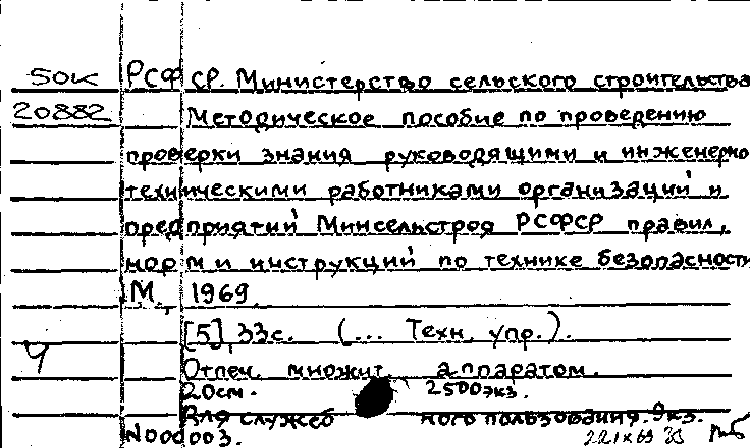 50к РСФСР. Министерство сельского строительства
20882 Методическое пособие по проведению
проверки знания руководящими и инженерно
техническими работниками организаций и
предприятий Минсельстроя РСФСР правил,
норм и инструкций по технике безопасности
М., 1969.
[5], 33с. (... Техн. упр.).
Ч
Отпеч. множит. аппаратом.
20см. 2500экз.
Для служебного пользования. Экз.
N000003.